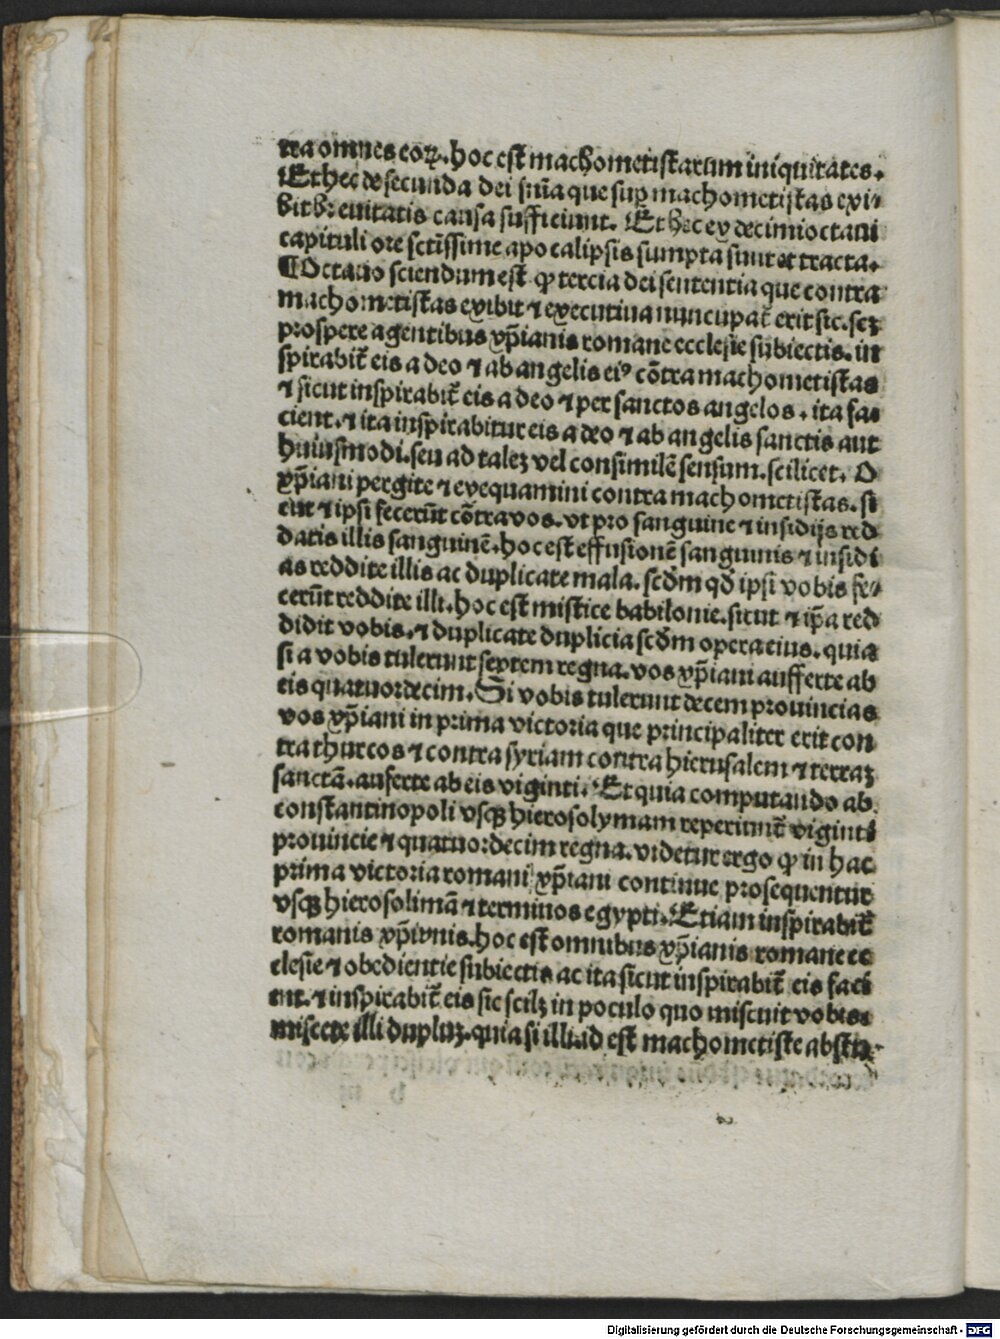 tra omnes eoꝝ. hoc est machometistarum iniquitates.
Et hec de secunda dei sn̄ia que suꝑ machometistas exi⸗
bit bꝛeuitatis causa sufficiunt. Et hec ex decimioctaui
capituli ore sctīssime apocalipsis sumpta sunt et tracta.
¶Octauo sciendum est ꝙ tercia dei sententia que contra
machometistas exibit ⁊ executiua nuncupat̄ erit sic. scꝫ
prospere agentibus xp̄ianis romane ecclesie subiectis. in
spirabit̄ eis a deo ⁊ ab angelis eiꝰ cōtra machometistas
⁊ sicut inspirabit̄ eis a deo ⁊ per sanctos angelos. ita fa⸗
cient. ⁊ ita inspirabitur eis a deo ⁊ ab angelis sanctis aut
huiusmodi. seu ad taleꝫ vel consimilē sensum. scilicet. O
xp̄iani pergite ⁊ exequamini contra machometistas. si
cut ⁊ ipsi fecerūt cōtra vos. vt pro sanguine ⁊ insidijs red
datis illis sanguinē. hoc est effusionē sanguinis ⁊ insidi
as reddite illis ac duplicate mala. scd̄m qd̄ ipsi vobis fe⸗
cerūt reddite illi. hoc est mistice babilonie. sicut ⁊ ip̄a red
didit vobis. ⁊ duplicate duplicia scd̄m opera eius. quia
si a vobis tulerunt septem regna. vos xp̄iani aufferte ab
eis quatuoꝛdecim. Si vobis tulerunt decem prouincias
vos xp̄iani in prima victoria que principaliter erit con
tra thurcos ⁊ contra syriam contra hierusalem ⁊ terraꝫ
sanctā. auferte ab eis viginti. Et quia computando ab
constantinopoli vsqꝫ hierosolymam reperiunt̄ viginti
prouincie ⁊ quatuoꝛdecim regna. videtur ergo ꝙ in hac
prima victoria romani xp̄iani continue prosequentur
vsqꝫ hierosolimā ⁊ terminos egypti. Etiam inspirabit̄
romanis xp̄ianis. hoc est omnibus xp̄ianis romane ec
clesie ⁊ obedientie subiectis ac ita sicut inspirabit̄ eis faci
ent. ⁊ inspirabit̄ eis sic scilꝫ in poculo quo miscuit vobis.
miscete illi dupluꝫ. quia si illi. id est machometiste absti⸗
Digitalisierung gefördert durch die Deutsche Forschungsgemeinschaft - DFG